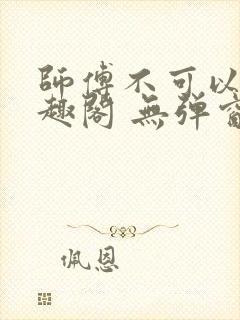 師傅不可以
趣閣 無弹
佩恩